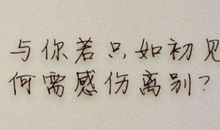 与你若只如初见
何需感伤离别?